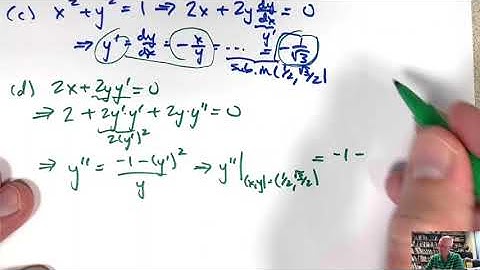 (c) x² + y² = 1 ⇒ 2x + 2y dy/dx = 0
y'
⇒ y' = dy/dx = -x/y = ... = -1/√3
sub. in (1/2, √3/2)
(d) 2x + 2yy' = 0
⇒ 2 + 2y'·y' + 2y·y'' = 0
2(y')²
⇒ y'' = -1-(y')²/y ⇒ y''|(x,y)=(1/2,√3/2) = -1 -